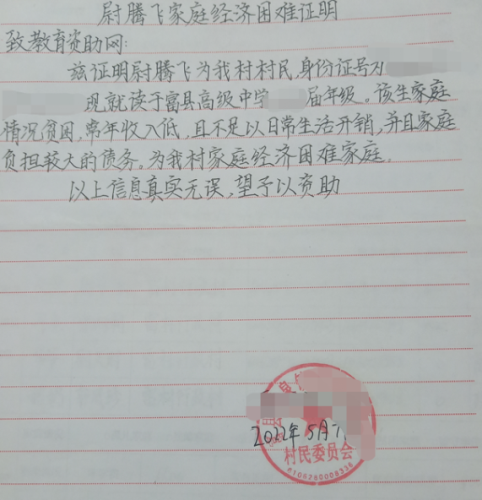 尉腾飞家庭经济困难证明
致教育资助网:
兹证明尉腾飞为我村村民,身份证号为
现就读于富县高级中学 届年级。该生家庭
情况贫困,常年收入低,且不足以日常生活开销,并且家庭
负担较大的债务,为我村家庭经济困难家庭.
以上信息真实无误,望予以资助
2022年5月7
村民委员会